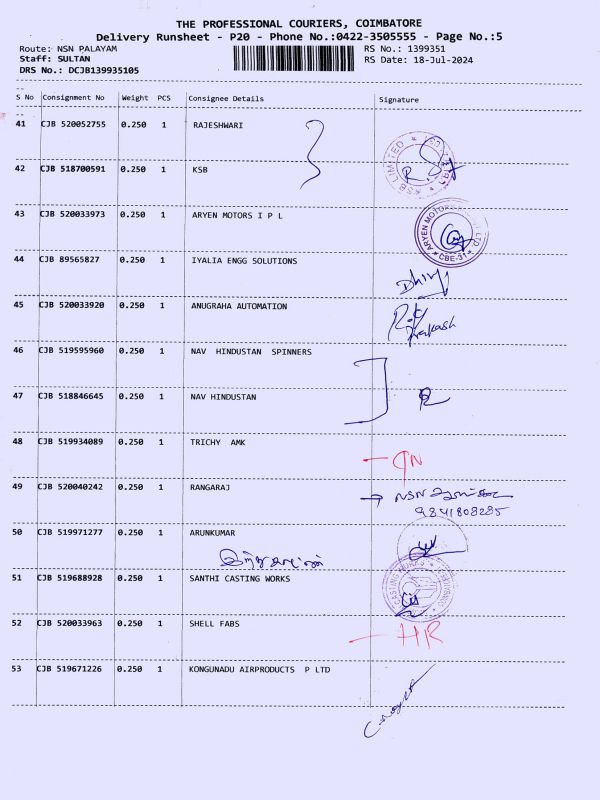 THE PROFESSIONAL COURIERS, COIMBATORE
Delivery Runsheet - P20 - Phone No.:0422-3505555 - Page No.:5
Route: NSN PALAYAM RS No.: 1399351
Staff: SULTAN RS Date: 18-Jul-2024
DRS No.: DCJB139935105
S No Consignment No Weight PCS Consignee Details Signature
41 CJB 520052755 0.250 1 RAJESHWARI
42 CJB 518700591 0.250 1 KSB
KSB LIMITED
43 CJB 520033973 0.250 1 ARYEN MOTORS I P L
ARYEN MOTORS LTD. CBE-31
44 CJB 89565827 0.250 1 IYALIA ENGG SOLUTIONS
45 CJB 520033920 0.250 1 ANUGRAHA AUTOMATION
Prakash
46 CJB 519595960 0.250 1 NAV HINDUSTAN SPINNERS
47 CJB 518846645 0.250 1 NAV HINDUSTAN
48 CJB 519934089 0.250 1 TRICHY AMK
49 CJB 520040242 0.250 1 RANGARAJ
NSN
9841808285
50 CJB 519971277 0.250 1 ARUNKUMAR
51 CJB 519688928 0.250 1 SANTHI CASTING WORKS
52 CJB 520033963 0.250 1 SHELL FABS
- HR
53 CJB 519671226 0.250 1 KONGUNADU AIRPRODUCTS P LTD